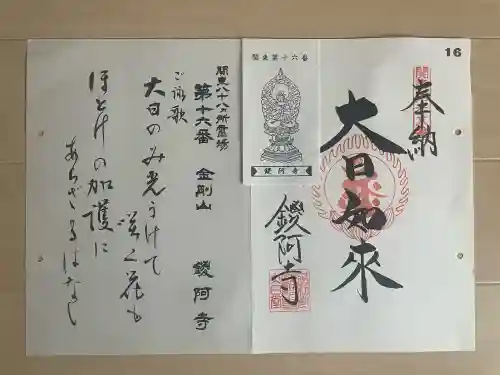 16
奉納
大日如來
鑁阿寺
関東第十六番
鑁阿寺
関東八十八ヵ所霊場
第十六番 金剛山 鑁阿寺
ご詠歌
大日のみ光うけて
咲く花も
ほとけの加護に
あらざるはなし